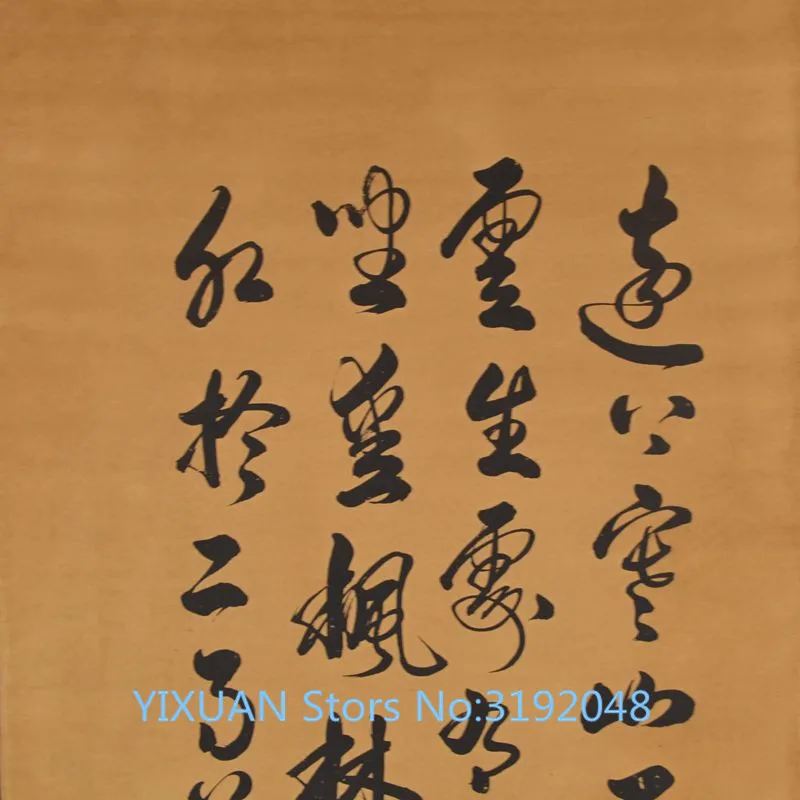 遠上寒山
雲生處有
坐愛楓林
紅於二月
YIXUAN Stors No:3192048